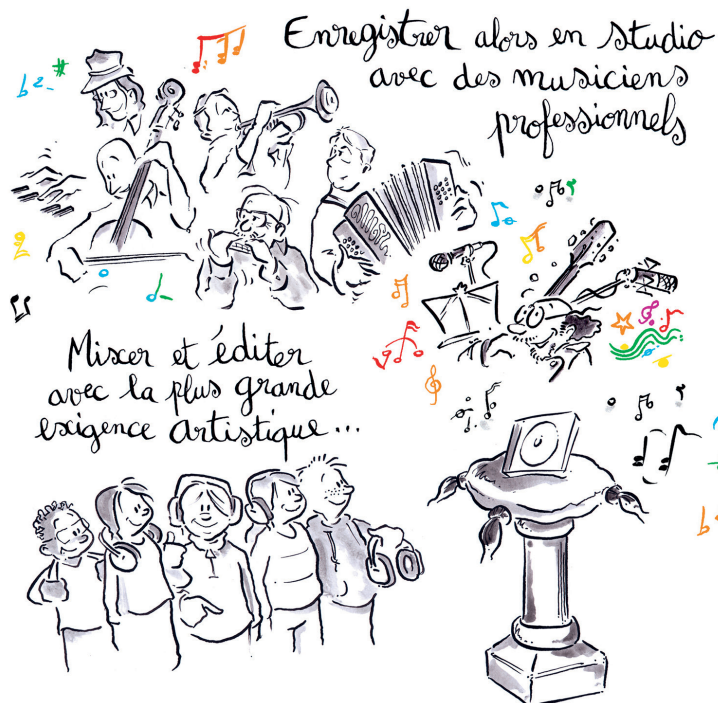 Enregistrer alors en studio
avec des musiciens
professionnels
Mixer et éditer
avec la plus grande
exigence artistique...